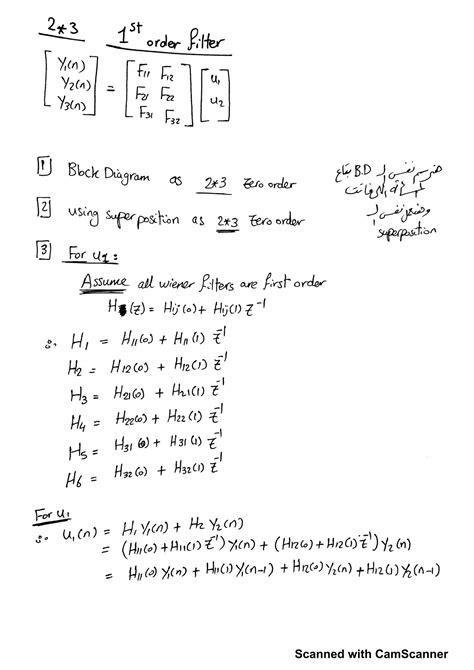 2*3 1st order filter
[Y₁(n) Y₂(n) Y₃(n)] = [F₁₁ F₁₂ F₂₁ F₂₂ F₃₁ F₃₂] [u₁ u₂]
1 Block Diagram as 2*3 zero order
هنرسم نفس ال B.D بتاع
2 using superposition as 2*3 zero order
ونفس ال
superposition
3 For u₁:
Assume all wiener filters are first order
H (z) = Hij(0) + Hij(1) z⁻¹
∴ H₁ = H₁₁(0) + H₁₁(1) z⁻¹
H₂ = H₁₂(0) + H₁₂(1) z⁻¹
H₃ = H₂₁(0) + H₂₁(1) z⁻¹
H₄ = H₂₂(0) + H₂₂(1) z⁻¹
H₅ = H₃₁(0) + H₃₁(1) z⁻¹
H₆ = H₃₂(0) + H₃₂(1) z⁻¹
For u₁
∴ u₁(n) = H₁ Y₁(n) + H₂ Y₂(n)
= (H₁₁(0) + H₁₁(1) z⁻¹) Y₁(n) + (H₁₂(0) + H₁₂(1) z⁻¹) Y₂(n)
= H₁₁(0) Y₁(n) + H₁₁(1) Y₁(n-1) + H₁₂(0) Y₂(n) + H₁₂(1) Y₂(n-1)
Scanned with CamScanner